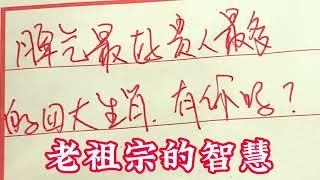 辉气最旺贵人最多
的四大生肖，有你吗？
老祖宗的智慧